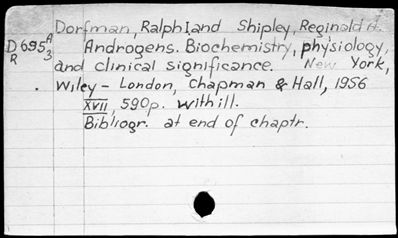 Dorfman, Ralph I. and Shipley, Reginald A.
D695 A3
R
Androgens. Biochemistry, physiology,
and clinical significance. New York,
Wiley - London, Chapman & Hall, 1956
XVII, 590p. with ill.
Bibliogr. at end of chaptr.